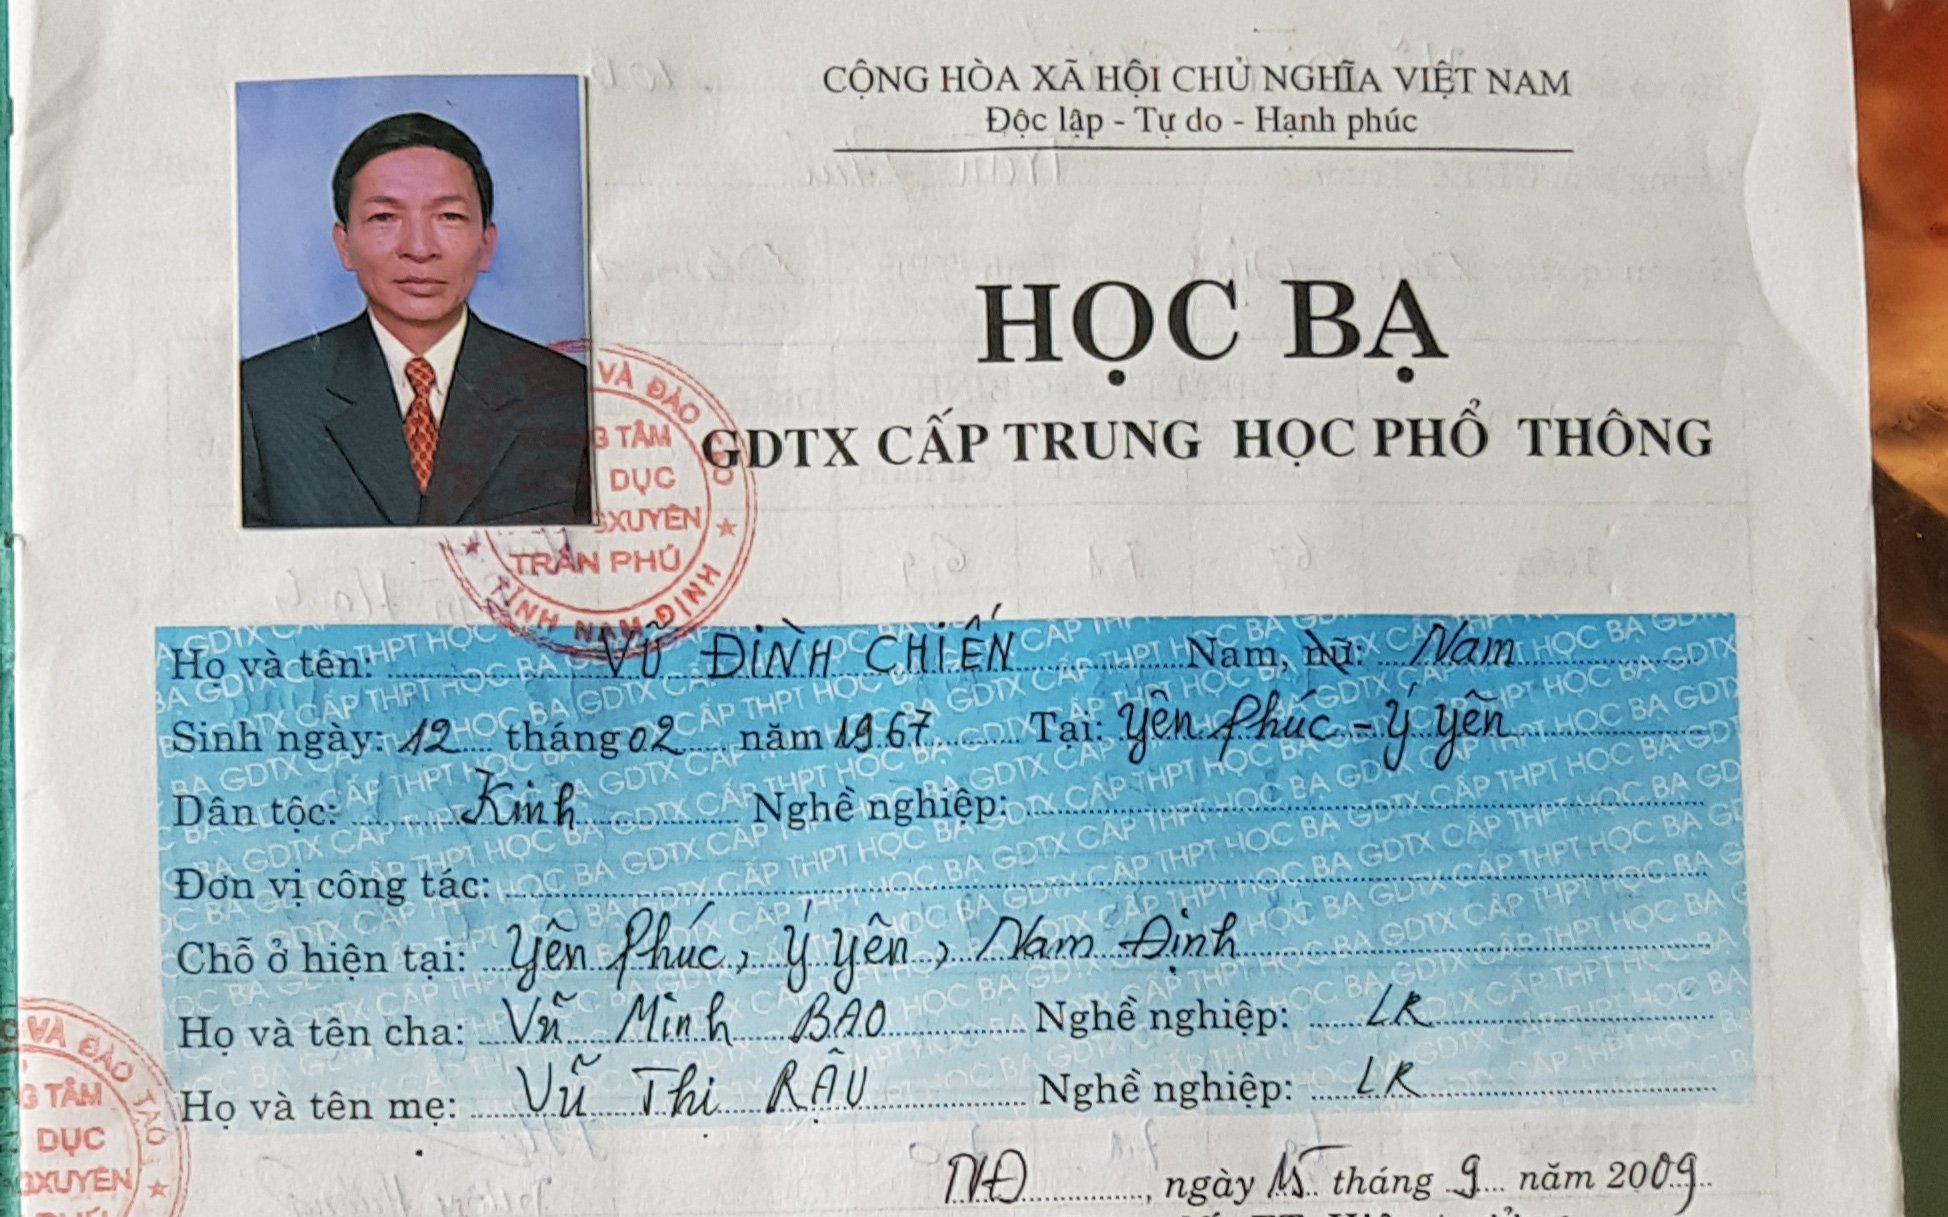 CỘNG HÒA XÃ HỘI CHỦ NGHĨA VIỆT NAM
Độc lập - Tự do - Hạnh phúc
HỌC BẠ
GDTX CẤP TRUNG HỌC PHỔ THÔNG
VÀ ĐÀO TẠO
TÂM
DỤC
XUYÊN
TRẦN PHÚ
TỈNH NAM ĐỊNH
Họ và tên: VŨ ĐÌNH CHIẾN Nam, nữ: Nam
Sinh ngày: 12 tháng 02 năm 1967 Tại: Yên Phúc - Ý Yên
Dân tộc: Kinh Nghề nghiệp:
Đơn vị công tác:
Chỗ ở hiện tại: Yên Phúc, Ý Yên, Nam Định
Họ và tên cha: Vũ Minh BAO Nghề nghiệp: LR
Họ và tên mẹ: Vũ Thị RẬU Nghề nghiệp: LR
VÀ ĐÀO TẠO
TÂM
DỤC
XUYÊN
NĐ, ngày 15 tháng 9 năm 2009